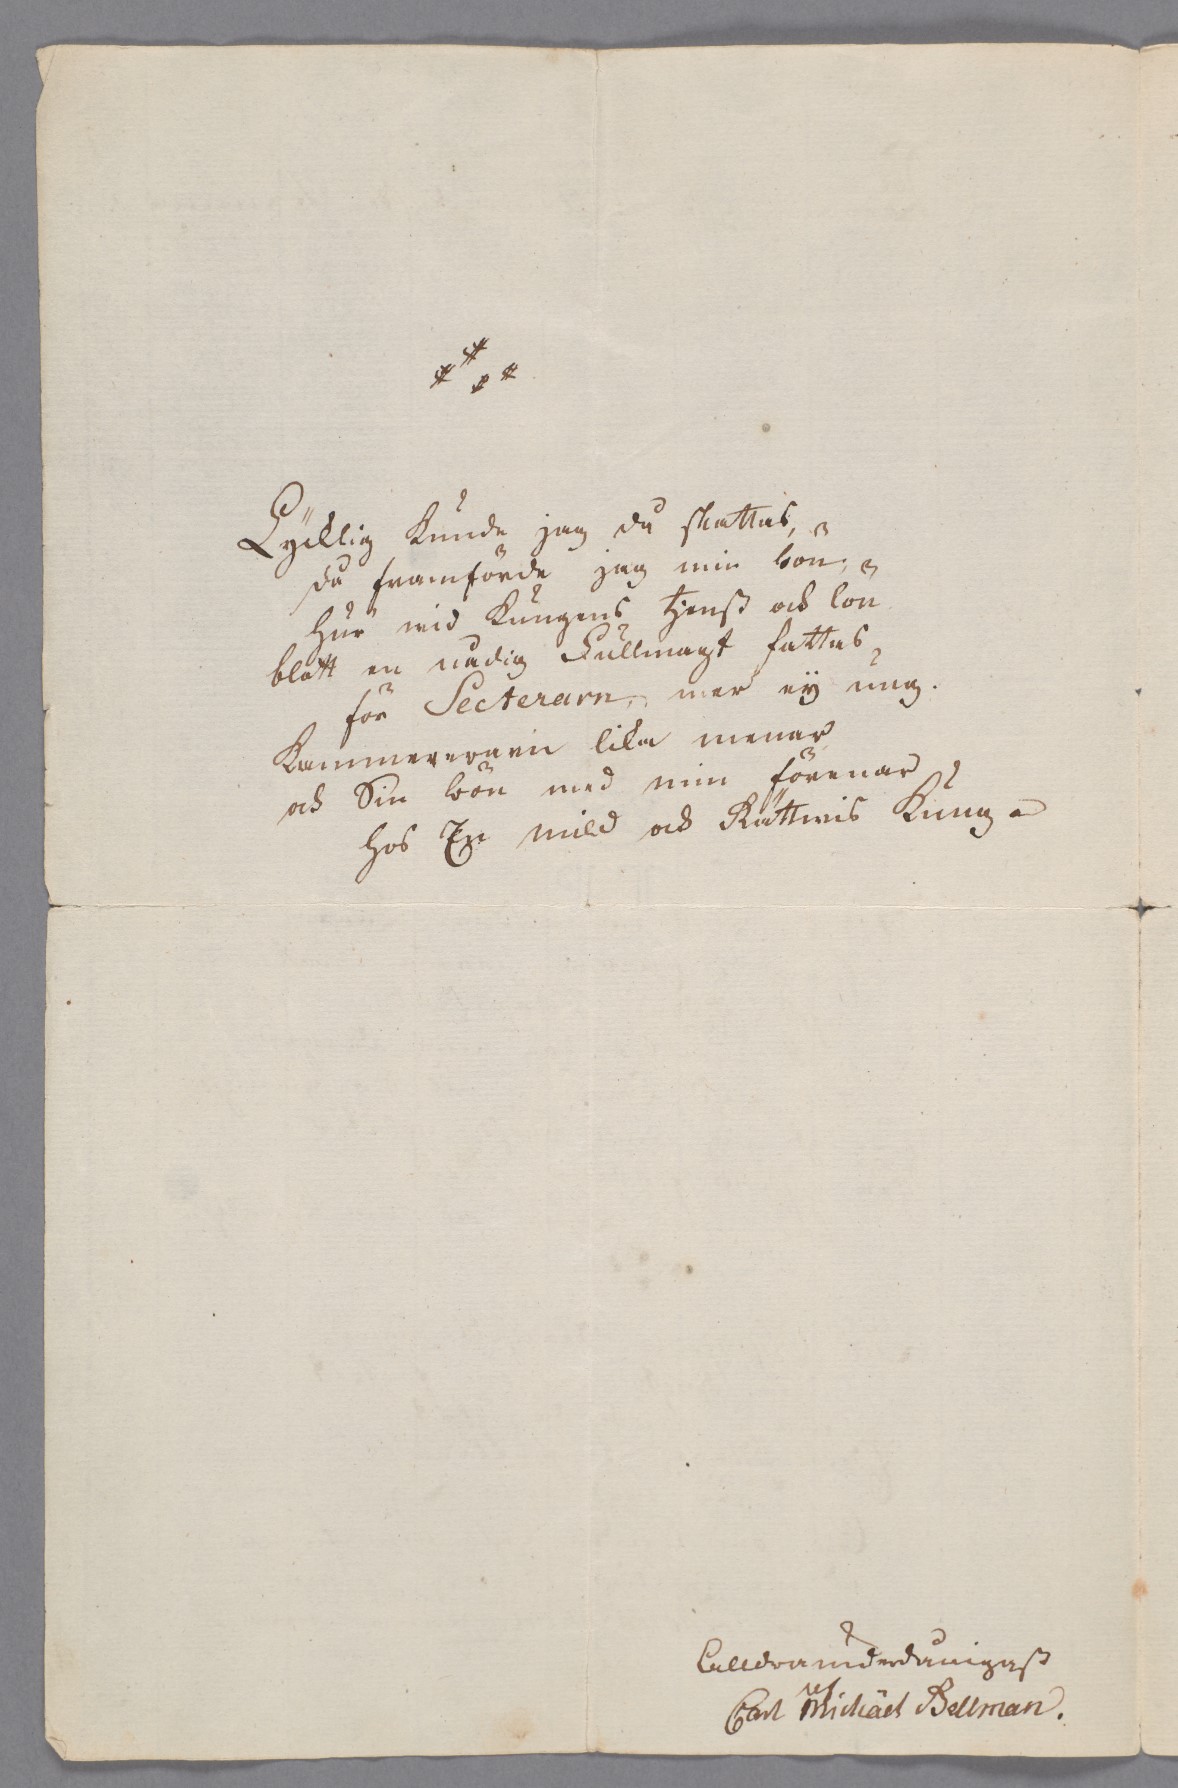 Lycklig Kunde jag då skattas,
då framförde jag min bön;
Hur wid Kungens tjenst och lön
blott en nådig Fullmagt fattas,
för Secterarn, mer ey ung.
Kammererarn lika menar
och Sin bön med min förenar
Hos En mild och Rättwis Kung
Alldraunderdånigast
Carl Michäel Bellman.